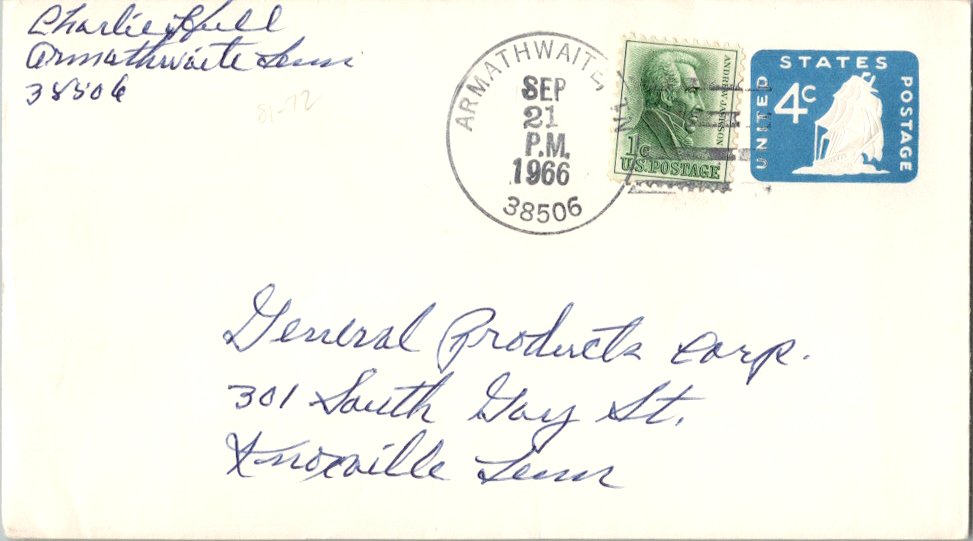 Charlie Hull
Armathwaite Tenn
38506
81-72
ARMATHWAITE, TENN
SEP
21
P.M.
1966
38506
ANDREW JACKSON
1c
U.S. POSTAGE
UNITED STATES POSTAGE
4c
General Products Corp.
301 South Gay St.
Knoxville Tenn